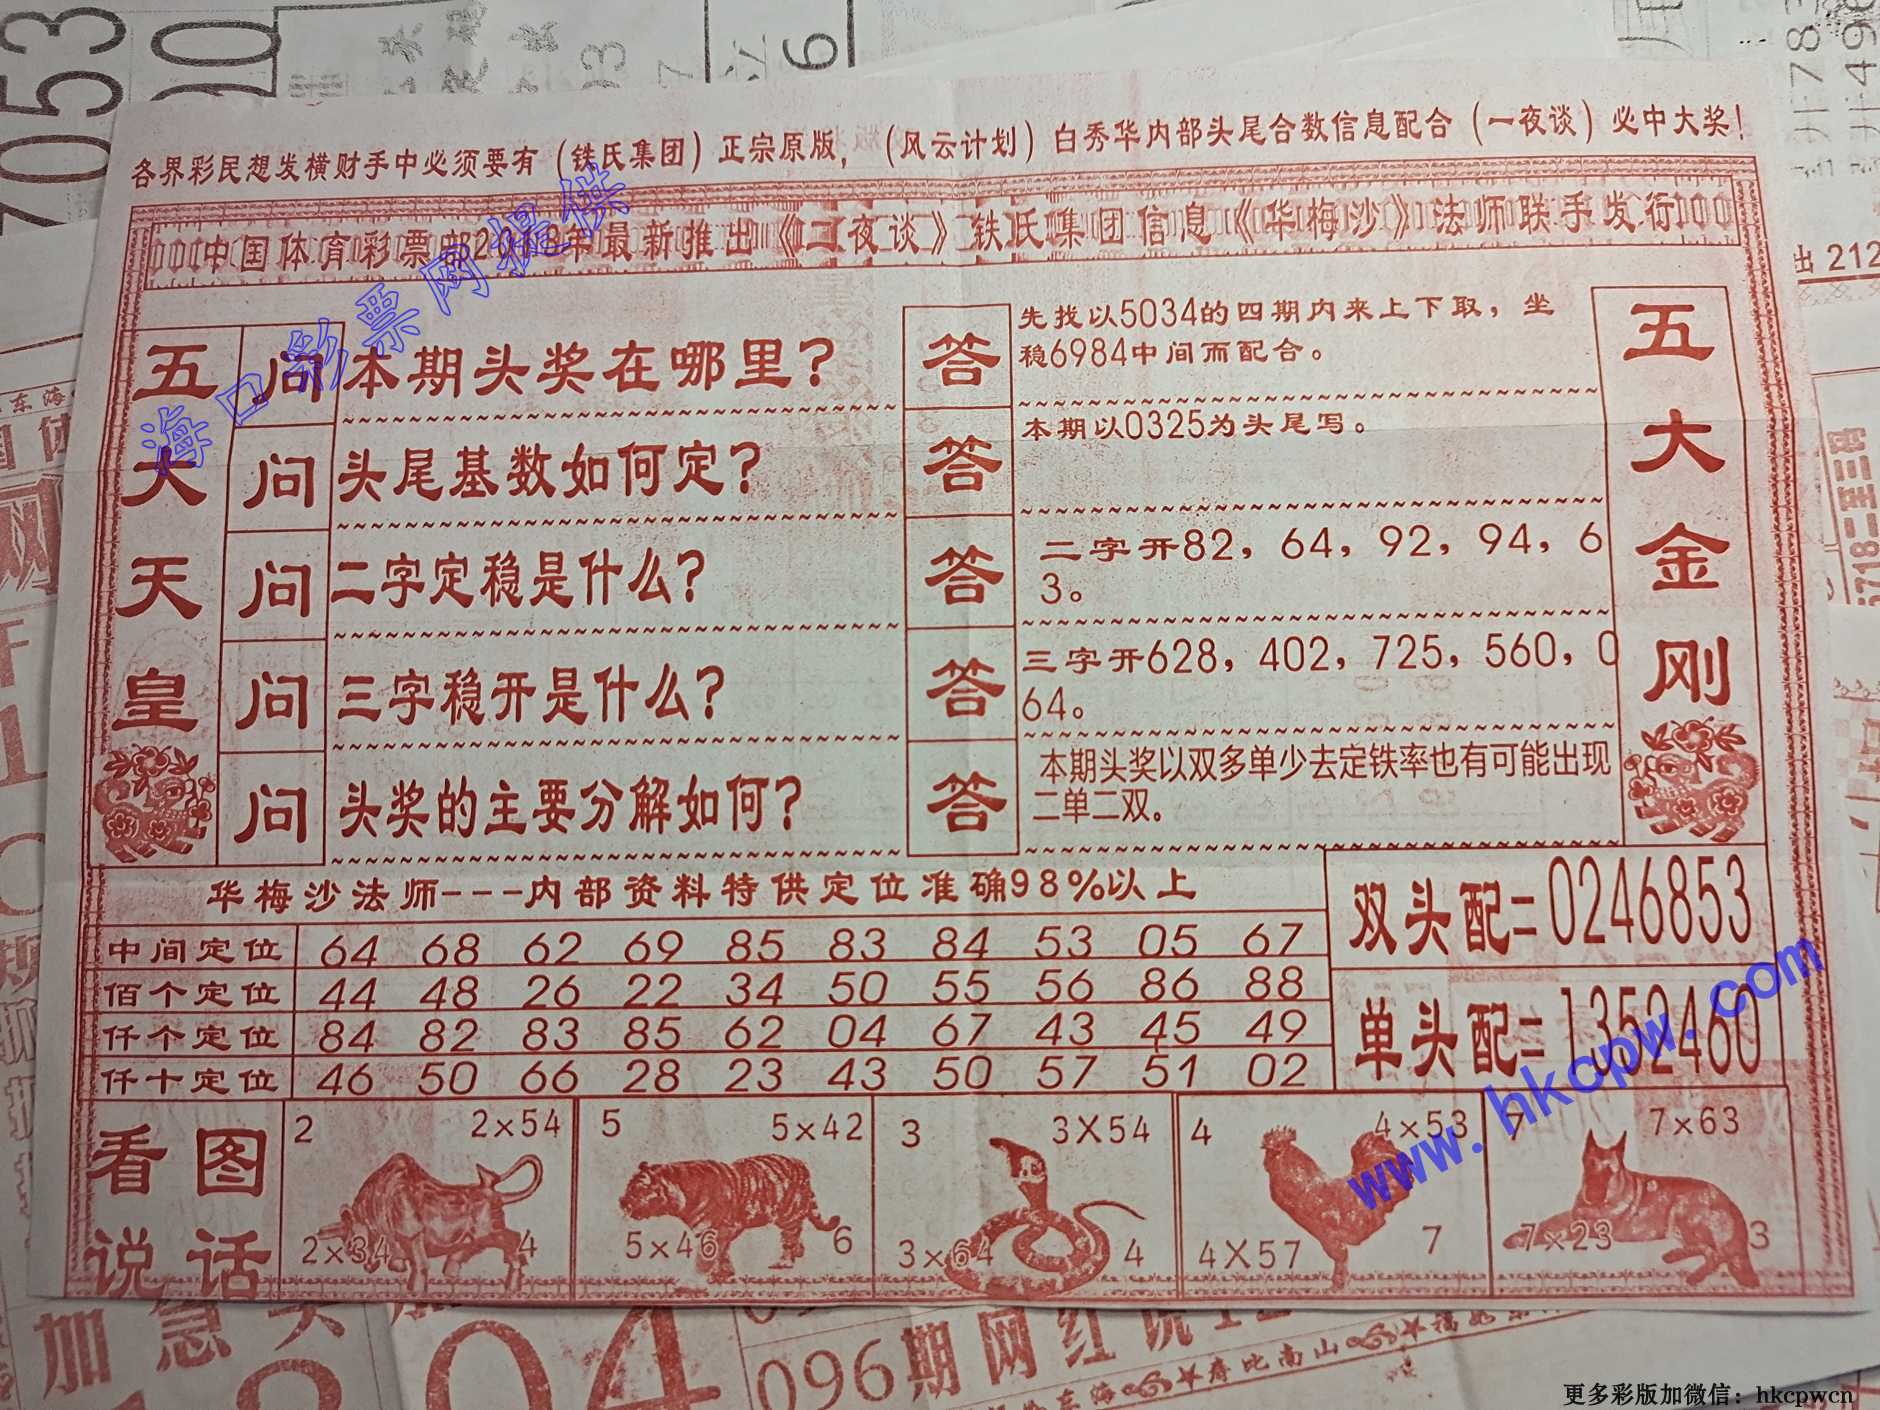 各界彩民想发横财手中必须要有（铁氏集团）正宗原版，（风云计划）白秀华内部头尾合数信息配合（一夜谈）必中大奖！
中国体育彩票部2018年最新推出《二夜谈》铁氏集团信息《华梅沙》法师联手发行
五大天皇
问 本期头奖在哪里？
答 先找以5034的四期内来上下取，坐
稳6984中间而配合。
问 头尾基数如何定？
答 本期以0325为头尾写。
问 二字定稳是什么？
答 二字开82，64，92，94，6
3。
问 三字稳开是什么？
答 三字开628，402，725，560，0
64。
问 头奖的主要分解如何？
答 本期头奖以双多单少去定铁率也有可能出现
二单二双。
五大金刚
华梅沙法师---内部资料特供定位准确98%以上
中间定位 64 68 62 69 85 83 84 53 05 67
佰个定位 44 48 26 22 34 50 55 56 86 88
仟个定位 84 82 83 85 62 04 67 43 45 49
仟十定位 46 50 66 28 23 43 50 57 51 02
双头配=0246853
单头配=1352460
看图
说话
2 2×54
2×34 4
5 5×42
5×46 6
3 3X54
3×64 4
4 4×53
4X57 7
7 7×63
7×23 3
海口彩票网提供
www.hkcpw.com
7053
6
出212
5718二星三码
加急
04
096期网红说
寿比南山
更多彩版加微信：hkcpwcn